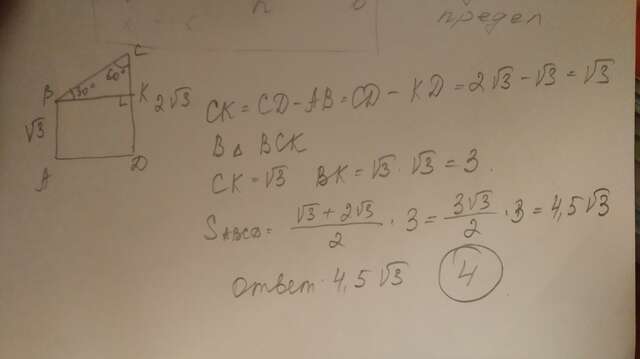 предел
C
60°
B 30° K 2√3
√3
A D
CK = CD - AB = CD - KD = 2√3 - √3 = √3
В △ BCK
CK = √3 BK = √3 · √3 = 3.
S ABCD = √3 + 2√3 / 2 · 3 = 3√3 / 2 · 3 = 4,5√3
Ответ: 4,5√3 4